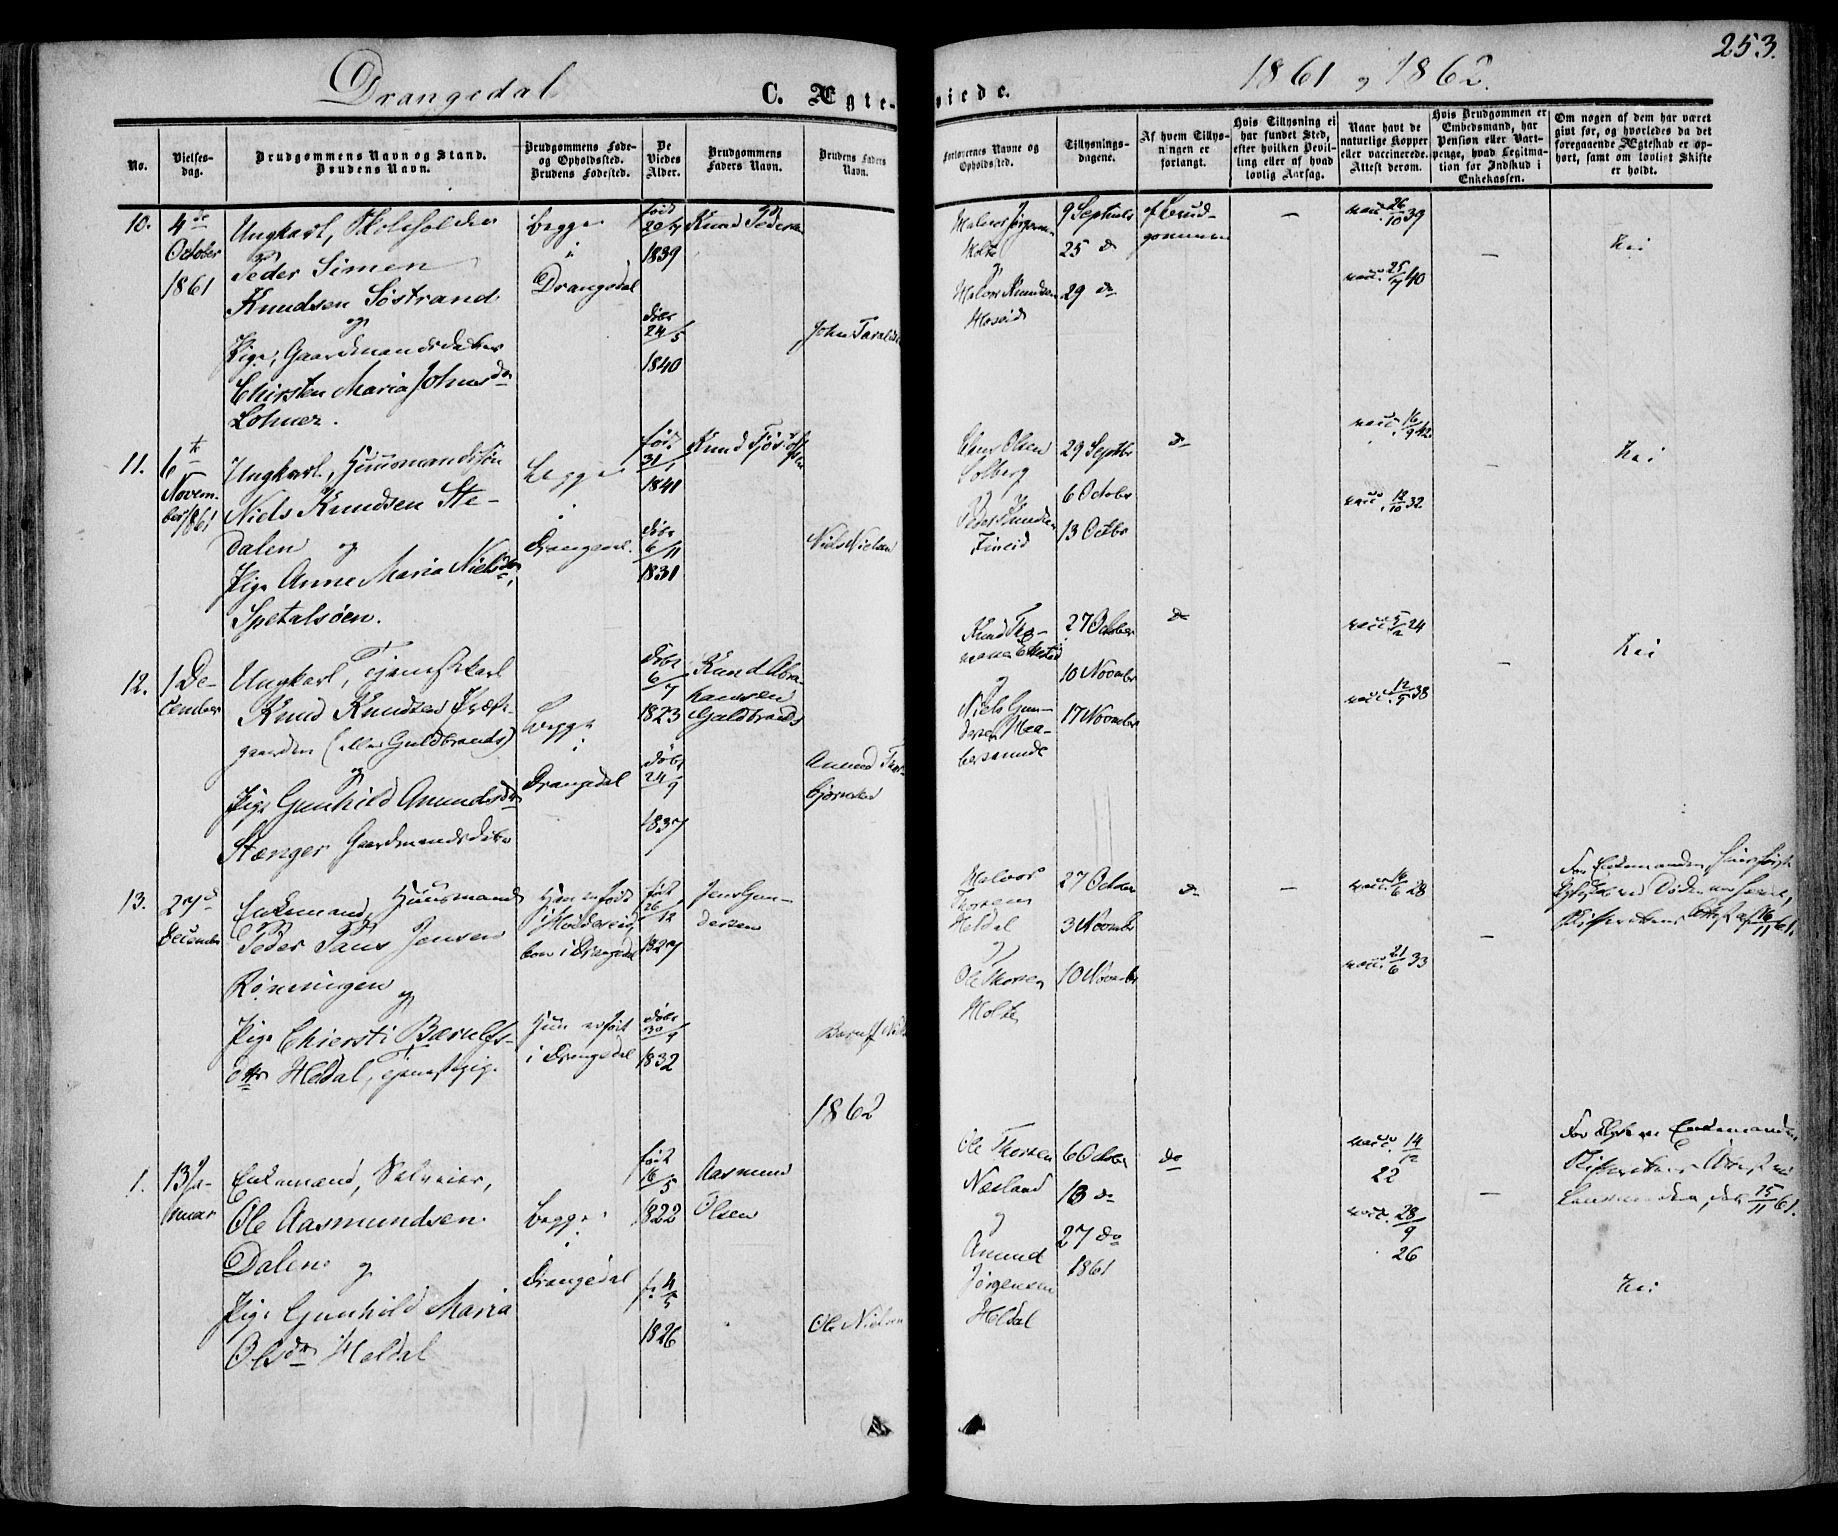 253.
Drangedal
C. Ægte-
viede.
1861 og 1862.
No.
Vielses-
dag.
Brudgommens Navn og Stand.
Brudens Navn.
Brudgommens Føde-
og Opholdssted.
Brudens Fødested.
De
Viedes
Alder.
Brudgommens
Faders Navn.
Brudens Faders
Navn.
Forlovernes Navne og
Opholdssted.
Tillysnings-
dagene.
Af hvem Tillys-
ningen er
forlangt.
Hvis Tillysning ei
har fundet Sted,
efter hvilken Bevil-
ling eller af hvad
lovlig Aarsag.
Naar havt de
naturlige Kopper
eller vaccinerede.
Attest derom.
Hvis Brudgommen er
Embedsmand, har
Pension eller Vart-
penge, hvad Legitima-
tion for Indskud i
Enkekassen.
Om nogen af dem har været
givt før, og hvorledes da det
foregaaende Ægteskab er op-
hørt, samt om lovligt Skifte
er holdt.
10.
4de
October
1861
Ungkarl, Skoleholder
Peder Simen
Knudsen Søstrand
og
Pige, Gaardmandsdatter
Chirsten Maria Johnsdr
Lohner.
begge
i
Drangedal
født
20/4
1839
døbt
24/5
1840
Knud Pedersen
John Taraldsen
Halvor Jørgensen
Holte
og
Halvor Knudsen
9 Septbr
25 do
29 do
af Brud-
gommen
-
vacc. 26/10 39
vacc. 25/7 40
-
Nei
11.
6te
Novem-
ber 1861
Ungkarl, Huusmandssøn
Niels Knudsen Ste-
dalen og
Pige Anne Maria Nielsdr,
Spetalsøen.
begge
i
Drangedal.
født
31/1
1841
døbt
6/11
1831
Niels Nielsen
Olsen
Solberg
og
Peder Knudsen
29 Septbr
6 Octobr
13 Octbr
do
vacc. 16/9 42
vacc. 12/10 32
-
Nei
12.
1 De-
cember
Ungkarl, Tjenestekarl
Knud Knudsen Præst-
gaarden (eller Guldbrands)
og
Pige Gunhild Amundsdr
Stænger Gaardmandsdatter
begge
i
Drangedal
døbt
6/7
1823
døbt
24/9
1837
Knud Abra-
hamsen
Guldbrands
Amund Thor-
bjørnsen
og
Niels Gun-
dersen
27 October
10 Novembr
17 Novembr
do
vacc. 5/2 24
vacc. 12/9 38
-
Nei
13.
27de
December
Enkemand, Huusmand
Peder Paus Jensen
Rønningen
og
Pige Chiersti Bærulfs-
dtr Heldal, Tjenestepige
Han er født
i
boer i Drangedal
Hun er født
i Drangedal
født
26/12
1827
døbt
30/9
1832
Jens Gun-
dersen
Halvor
Thorsen
Heldal
og
Ole Thorsen
Holte
27 October
3 Novembr
10 Novembr
do
-
vacc. 16/6 28
vacc. 21/6 33
-
For Enkemanden
16/11 61.
1862
1.
13 Ja-
nuar
Enkemand, Selveier,
Ole Aasmundsen
Dalen og
Pige Gunhild Maria
Olsdr Heldal
begge
i
Drangedal
født
16/5
1822
f. 4/5
1826
Aasmund
Olsen
Ole Nielsen
Ole Thorsen
Næsland
og
Amund
Jørgensen
Heldal
6 October
13 do
27 do
1861
do
vacc. 14/12
22
vacc. 28/9
26
-
Enkemanden
15/11 61.
Nei